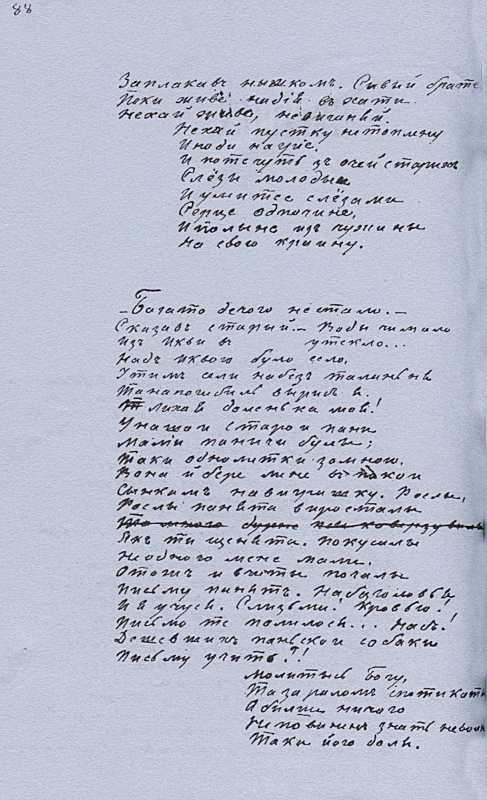 88
Заплакавъ нышкомъ. Сывый брате
Поки живе надія въ хати
Нехай живе, невиганяй.
Нехай пустку нетоплену
Иноди нагріе.
И потечуть зъ очей старыхъ
Слёзы молодые
И умытее слёзами
Серце одпочине,
И полыне изъ чужины
На свою краину.
— Багато дечого нестало. —
Сказавъ старый. — Воды чимало
Изъ Икви въ утекло...
Надъ Иквою було село,
Утимъ сели
Танапогибиль вырисъ я.
Лихая доленька моя!
Унашои старои пани
Малии паничи булы;
Таки однолитки замною.
Вона й бере мене въ покои
Сынкамъ навигрышку. Рослы,
Рослы панята виросталы
Якъ ти щенята. Покусалы
Неодного мене мали.
Отожъ и вчыты почалы
Письму панятъ. Набезголовья
И я учуся. Слизьми! Кровью!
Письмо те полилося... Насъ!
Дешевшихъ панськои собаки
Письму учить?!
Молитысь Богу,
Та за раломъ спотикатись
А билше ничого
Неповиненъ знать неволь
Така його доля.